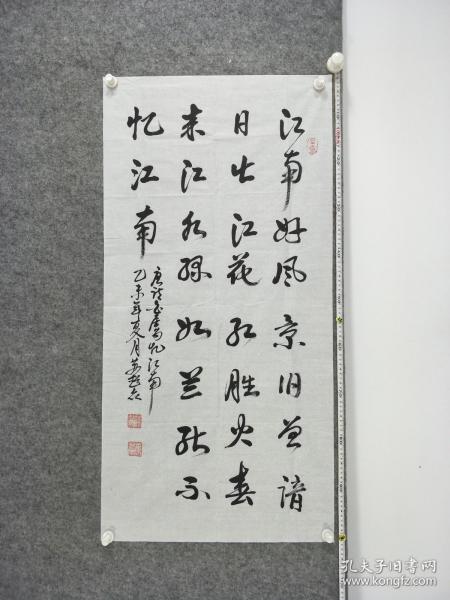 江南好风景旧曾谙
日出江花红胜火春
来江水绿如兰能不
忆江南
唐诗白居易忆江南
乙未年夏月
孔夫子旧书网
www.kongfz.com